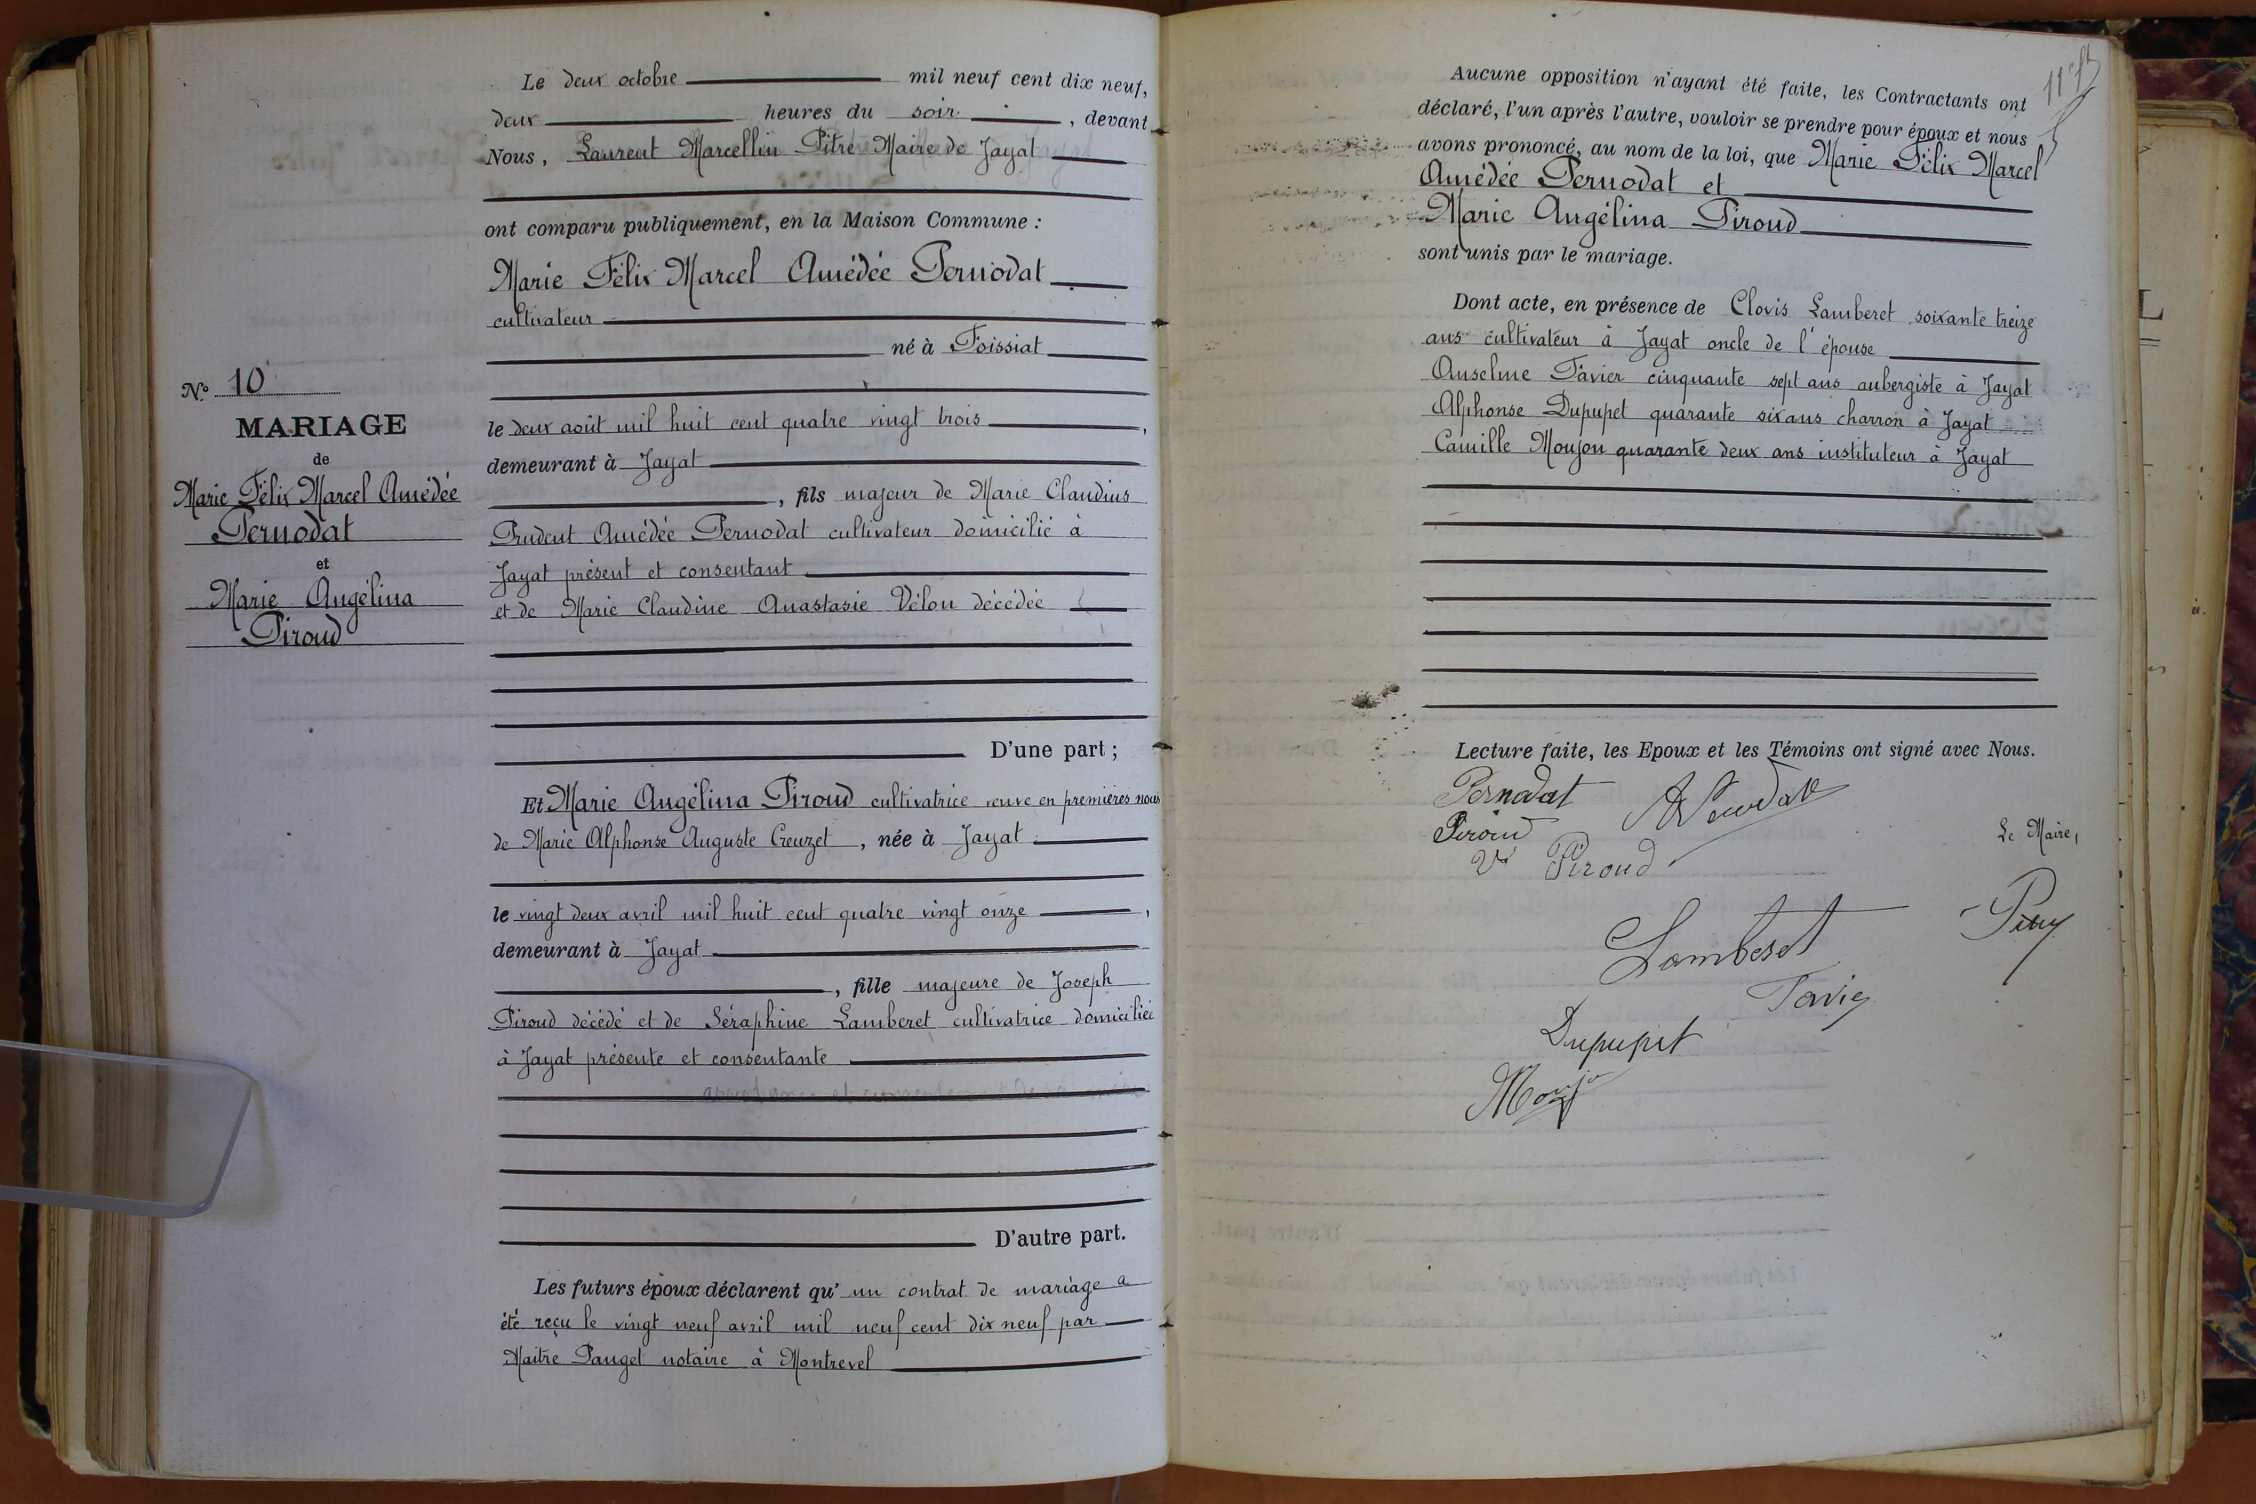 N.º 10
MARIAGE
de
Marie Félix Marcel Amédée
Pernodat
et
Marie Angélina
Piroud
Le deux octobre mil neuf cent dix neuf,
deux heures du soir, devant
Nous, Laurent Marcellin Pitre Maire de Jayat
ont comparu publiquement, en la Maison Commune :
Marie Félix Marcel Amédée Pernodat
cultivateur
né à Foissiat
le deux août mil huit cent quatre vingt trois,
demeurant à Jayat
, fils majeur de Marie Claudius
Prudent Amédée Pernodat cultivateur domicilié à
Jayat présent et consentant
et de Marie Claudine Anastasie Vélon décédée
D'une part ;
Et Marie Angélina Piroud cultivatrice veuve en premières noces
de Marie Alphonse Auguste Creuzet, née à Jayat
le vingt deux avril mil huit cent quatre vingt onze,
demeurant à Jayat
, fille majeure de Joseph
Piroud décédé et de Séraphine Lamberet cultivatrice domiciliée
à Jayat présente et consentante
D'autre part.
Les futurs époux déclarent qu' un contrat de mariage a
été reçu le vingt neuf avril mil neuf cent dix neuf par
Maître Pauget notaire à Montrevel
Aucune opposition n'ayant été faite, les Contractants ont
déclaré, l'un après l'autre, vouloir se prendre pour époux et nous
avons prononcé, au nom de la loi, que Marie Félix Marcel
Amédée Pernodat et
Marie Angélina Piroud
sont unis par le mariage.
Dont acte, en présence de Clovis Lamberet soixante treize
ans cultivateur à Jayat oncle de l'épouse
Anselme Favier cinquante sept ans aubergiste à Jayat
Alphonse Dupupet quarante six ans charron à Jayat
Camille Moujon quarante deux ans instituteur à Jayat
Lecture faite, les Epoux et les Témoins ont signé avec Nous.
Pernodat
Piroud
Piroud
Le Maire,
Lamberet
Dupupet